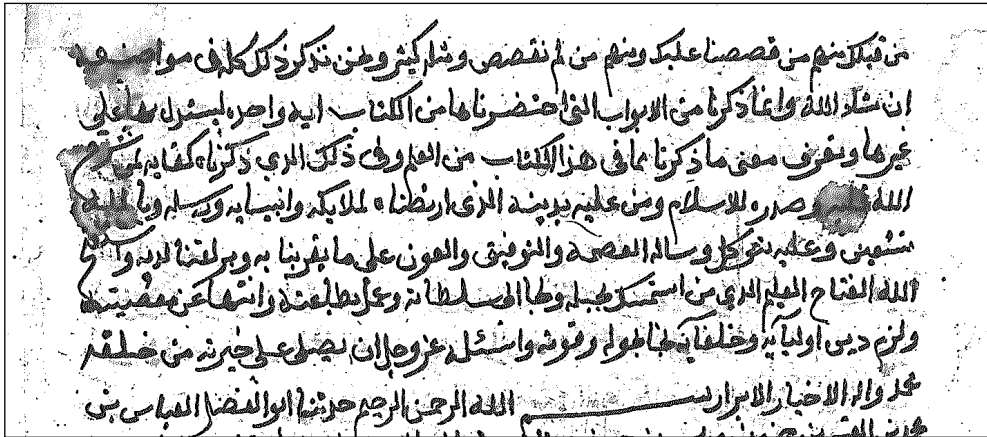 من قبلك منهم من قصصنا عليك ومنهم من لم نقصص ومثله كثير ونحن نذكر ذلك كله في مواضعه
ان شاء الله وانما ذكرنا من الابواب التي احتضرناها من الكتاب ايه واحده ليستدل بها على
غيرها ويعرف معنى ما ذكرنا مما في هذا الكتاب من العلم وفي ذلك الذي ذكرناه كفايه لمن شرح
الله صدره للاسلام ومن عليه بدينه الذي ارتضاه لملايكته وانبيايه ورسله وبالله
نستعين وعليه نتوكل ونساله العصمة والتوفيق والعون على ما يقربنا به ويزلفنا لديه
الله الفتاح العليم الذي من استمسك بحبله ولجا الى سلطانه وعمل بطاعته وانتها عن معصيته
ولزم دين اوليآيه وخلفآيه نجا بحوله وقوته واسئله عز وجل ان يصلي على خيرته من خلقه
محمد واله الاخيار الابرار الله الرحمن الرحيم حدثنا ابو الفضل العباس بن
محمد بن القسم